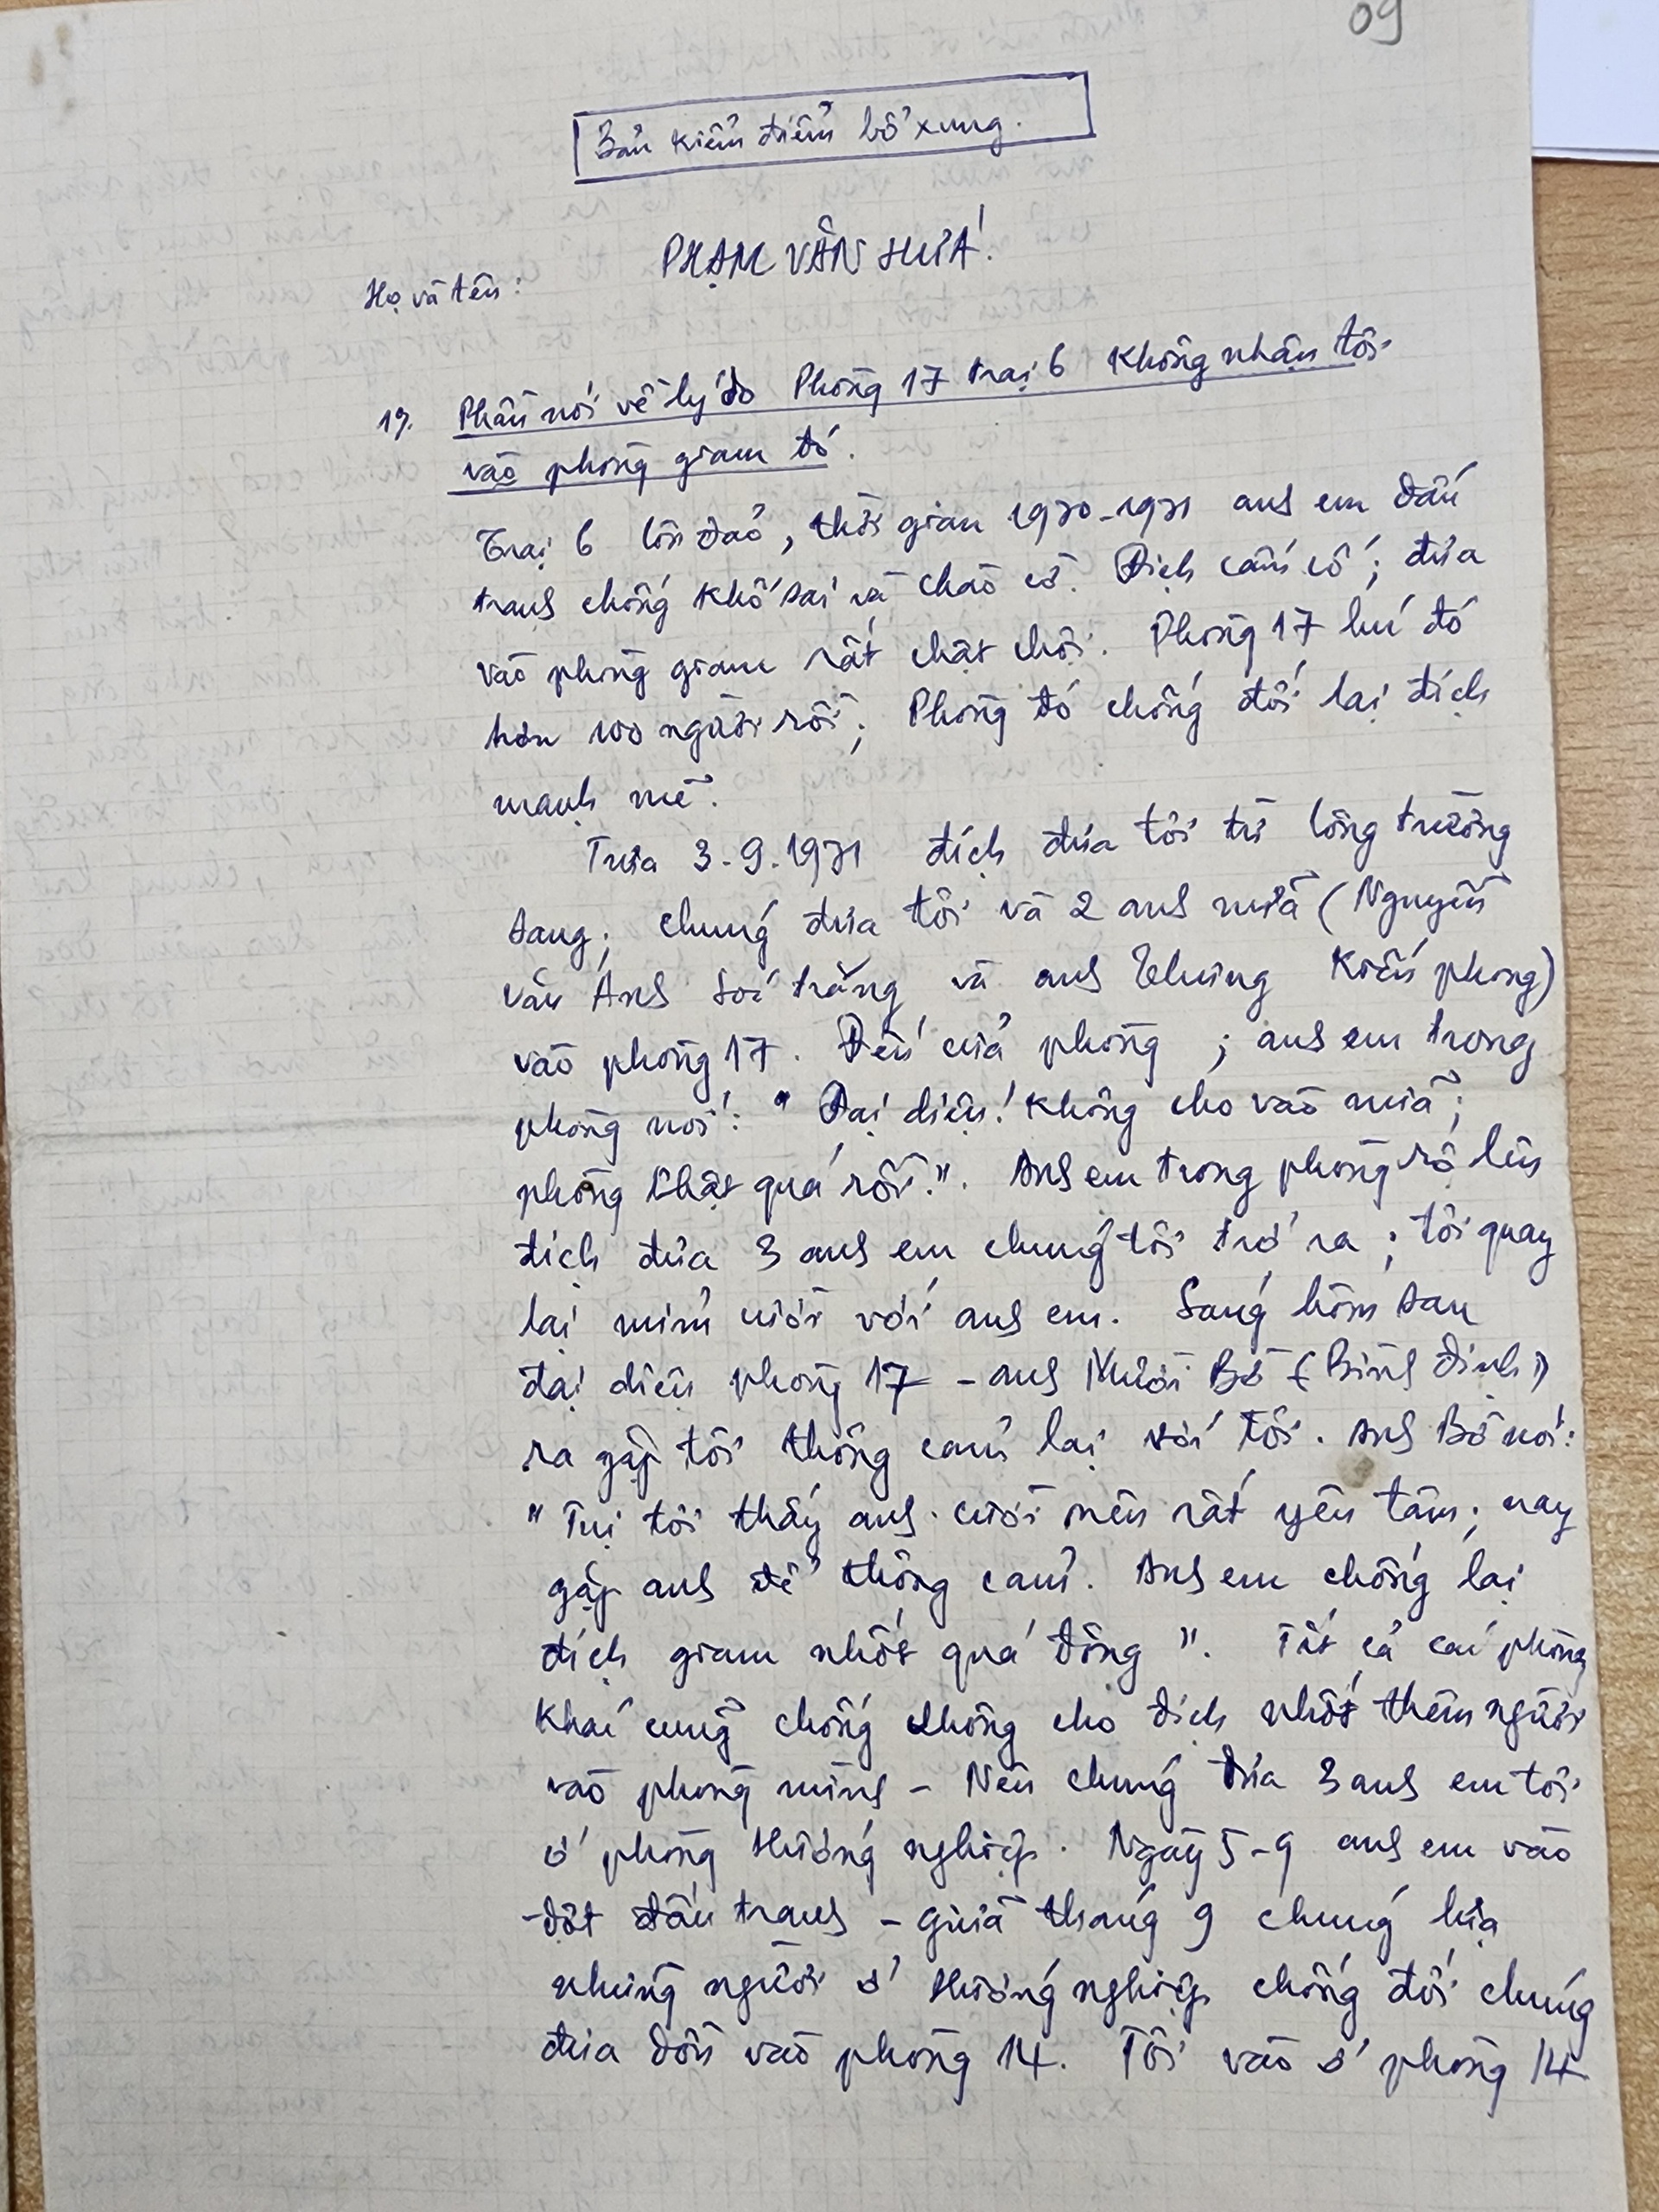 09
Bản kiểm điểm bổ xung.
PHẠM VĂN HỨA!
Họ và tên:
19. Phần nói về lý do Phòng 17 trại 6 không nhận tôi
vào phòng giam đó.
Trại 6 Côn đảo, thời gian 1970-1971 anh em đấu
tranh chống khổ sai và chào cờ. Địch cấm cố; đưa
vào phòng giam rất chật chội. Phòng 17 lúc đó
hơn 100 người rồi; Phòng đó chống đối lại địch
mạnh mẽ.
Trưa 3.9.1971 địch đưa tôi từ lòng trường
sang; chúng đưa tôi và 2 anh nữa (Nguyễn
văn Ánh Sóc trăng và anh Chừng Kiến phong)
vào phòng 17. Đến cửa phòng; anh em trong
phòng nói: "Đại diện! không cho vào nữa;
phòng chật quá rồi.". Anh em trong phòng rộ lên
địch đưa 3 anh em chúng tôi trở ra; tôi quay
lại mỉm cười với anh em. Sáng hôm sau
đại diện phòng 17 - anh Mười Bờ (Bình định)
ra gặp tôi thông cảm lại với tôi. Anh Bờ nói:
"Tụi tôi thấy anh cười nên rất yên tâm; nay
gặp anh để thông cảm. Anh em chống lại
địch giam nhốt quá đông". Tất cả các phòng
khác cũng chống không cho địch nhốt thêm người
vào phòng mình - Nên chúng đưa 3 anh em tôi
ở phòng Hướng nghiệp. Ngày 5-9 anh em vào
đợt đấu tranh - giữa tháng 9 chúng lừa
những người ở Hướng nghiệp chống đối chúng
đưa dồn vào phòng 14. Tôi vào ở phòng 14